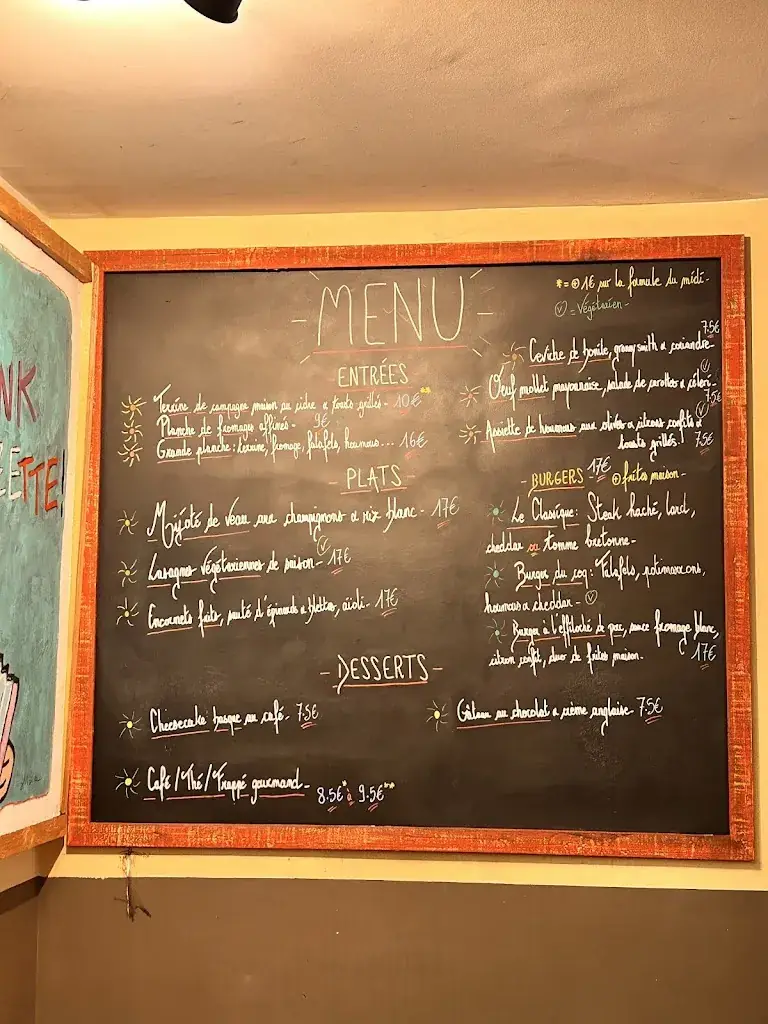 NK
ETTE!
MENU
*=⊕1€ sur la formule du midi-
Ⓥ = Végétarien-
ENTRÉES
Terrine de campagne maison au cidre & toasts grillés - 10€**
Planche de fromages affinés - 9€
Grande planche: terrine, fromage, falafels, houmous... 16€
Ceviche de , granny smith & coriandre- 7.5€
Œuf mollet mayonnaise, salade de carottes & céleri- Ⓥ 7.5€
Assiette de houmous aux olives & citrons confits & Ⓥ
toasts grillés! 7.5€
- PLATS -
Mijoté de veau aux champignons & riz blanc - 17€
Lasagnes végétariennes de saison - Ⓥ 17€
Encornets frits, sauté d'épinards & blettes, aïoli - 17€
- BURGERS - 17€ ⊕ frites maison -
Le Classique: Steak haché, lard,
cheddar ou tomme bretonne-
Burger du coq: Falafels, potimarrons,
houmous & cheddar - Ⓥ
Burger à l'effiloché de porc, sauce fromage blanc,
citron confit, duo de frites maison. 17€
- DESSERTS -
Cheesecake basque au café - 7.5€
Gâteau au chocolat & crème anglaise 7.5€
Café / Thé / Frappé gourmand - 8.5€* à 9.5€**